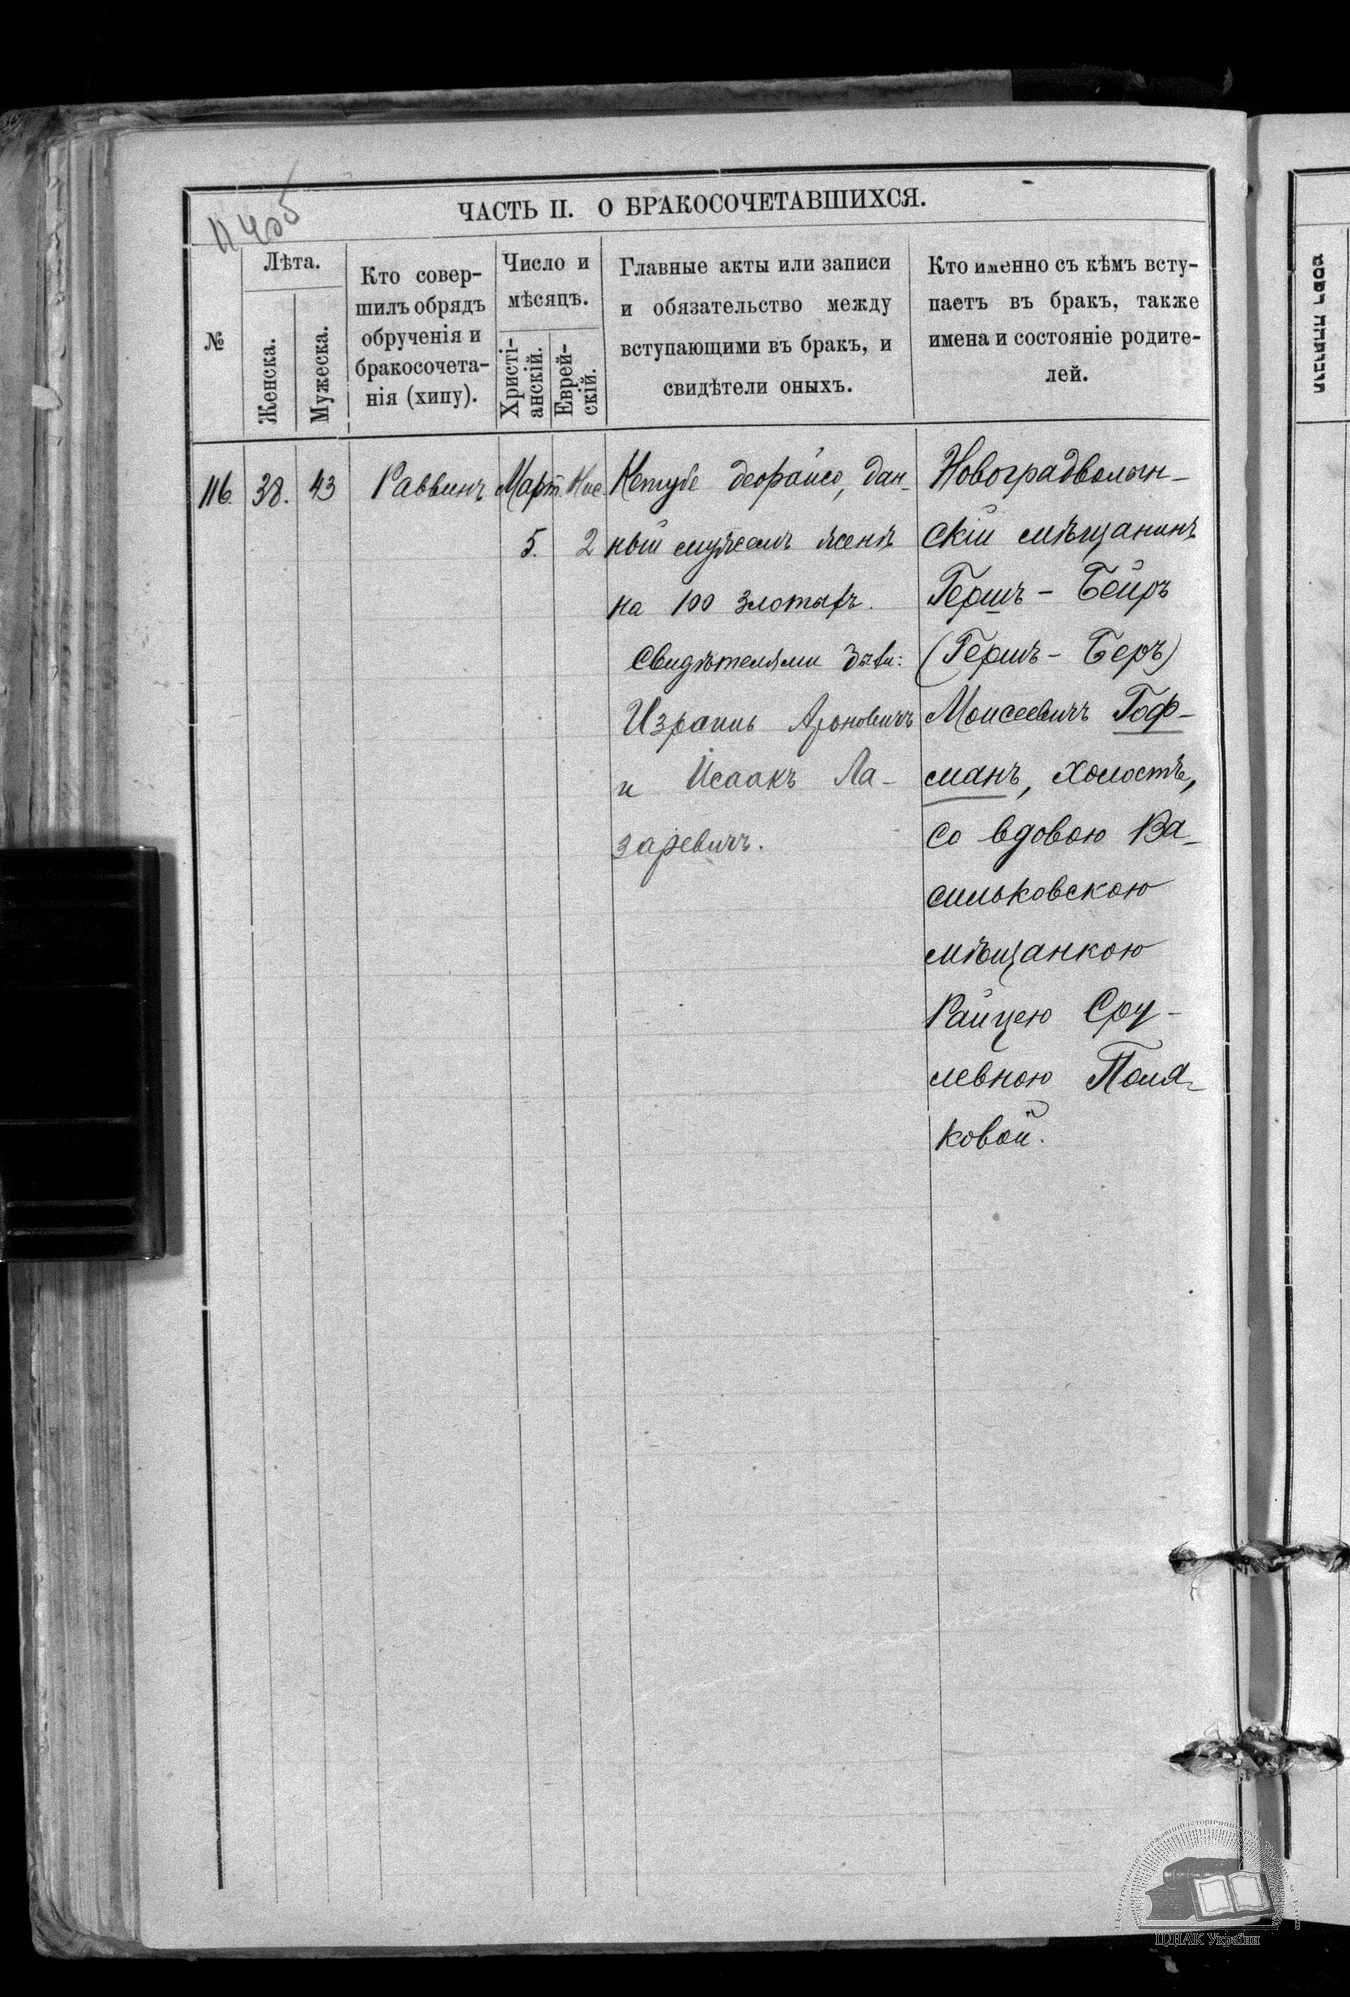 ЧАСТЬ II. О БРАКОСОЧЕТАВШИХСЯ.
№
Лѣта.
Женска.
Мужеска.
Кто совер-
шилъ обрядъ
обрученія и
бракосочета-
нія (хипу).
Число и
мѣсяцъ.
Христі-
анскій.
Еврей-
скій.
Главные акты или записи
и обязательство между
вступающими въ бракъ, и
свидѣтели оныхъ.
Кто именно съ кѣмъ всту-
паетъ въ бракъ, также
имена и состояніе родите-
лей.
116. 38. 43 Раввинъ Март.
5. 2
Кетубе деорайсо, дан-
ный мужемъ женѣ
на 100 злотыхъ.
Свидѣтелями были:
Израиль Ароновичъ
и Исаакъ Ла-
заревичъ.
Новоградволын-
скій мѣщанинъ
Гершъ - Бейръ
(Гершъ - Беръ)
Моисеевичъ Гоф-
манъ, холостъ,
со вдовою Ва-
сильковскою
мѣщанкою
Райцею Сру-
левною Поля-
ковой.
ЦДІАК України